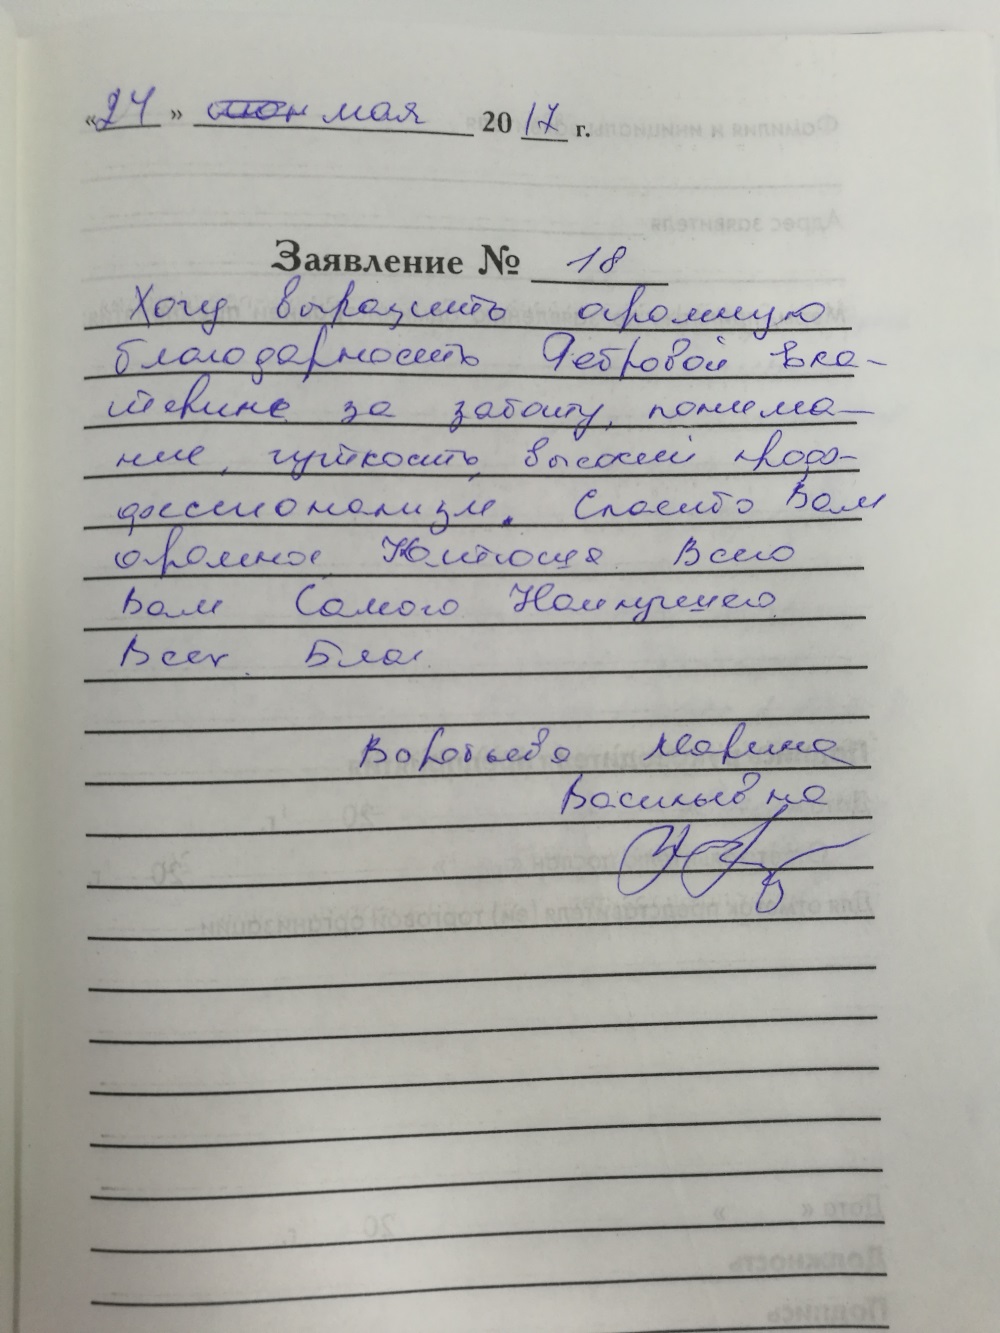 «24» мая 2017 г.
Заявление № 18
Хочу выразить огромную
благодарность Петровой Ека-
терине за заботу, понима-
ние, чуткость, высокий проф-
фессионализм. Спасибо Вам
огромное Катюша Всего
Вам Самого Наилучшего
Всех Благ
Воробьева Марина
Васильевна